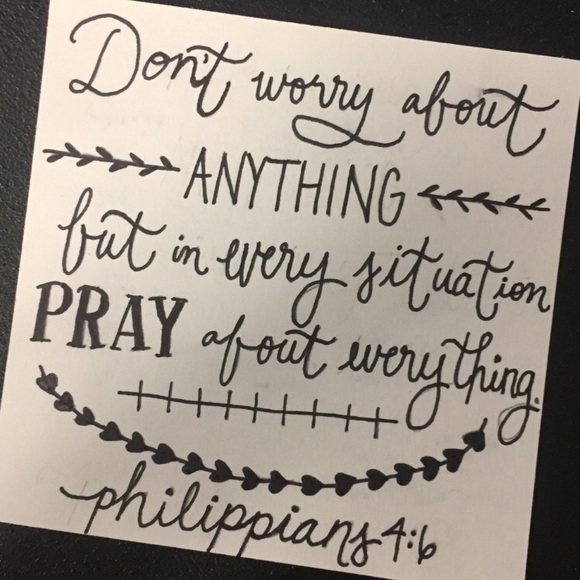 Don't worry about
ANYTHING
but in every situation
PRAY about everything.
philippians 4:6